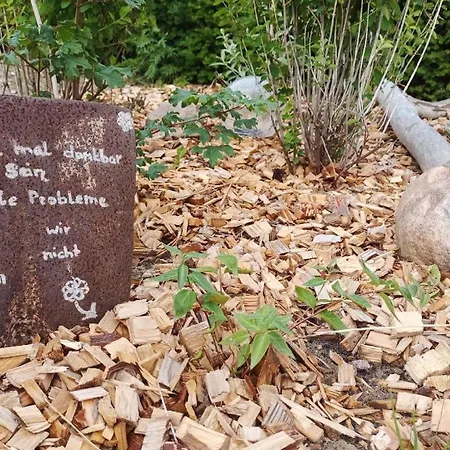 mal dankbar
sein
le Probleme
wir
nicht
n